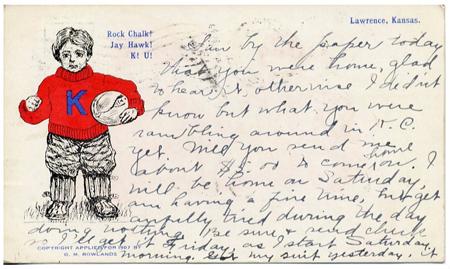 Rock Chalk!
Jay Hawk!
K! U!
Lawrence, Kansas.
K
Saw by the paper today
that you were home, glad
to hear it, otherwise I didn't
know but what you were
rambling around in K. C.
yet. Will you send me
about $5.00 to come home on, I
will be home on Saturday,
am having a fine time, but get
awfully tired during the day
doing nothing. Be sure & send check
so I get it Friday, as I start Saturday
morning. Got my suit yesterday, it
COPYRIGHT APPLIED FOR 1907 BY
G. M. ROWLANDS